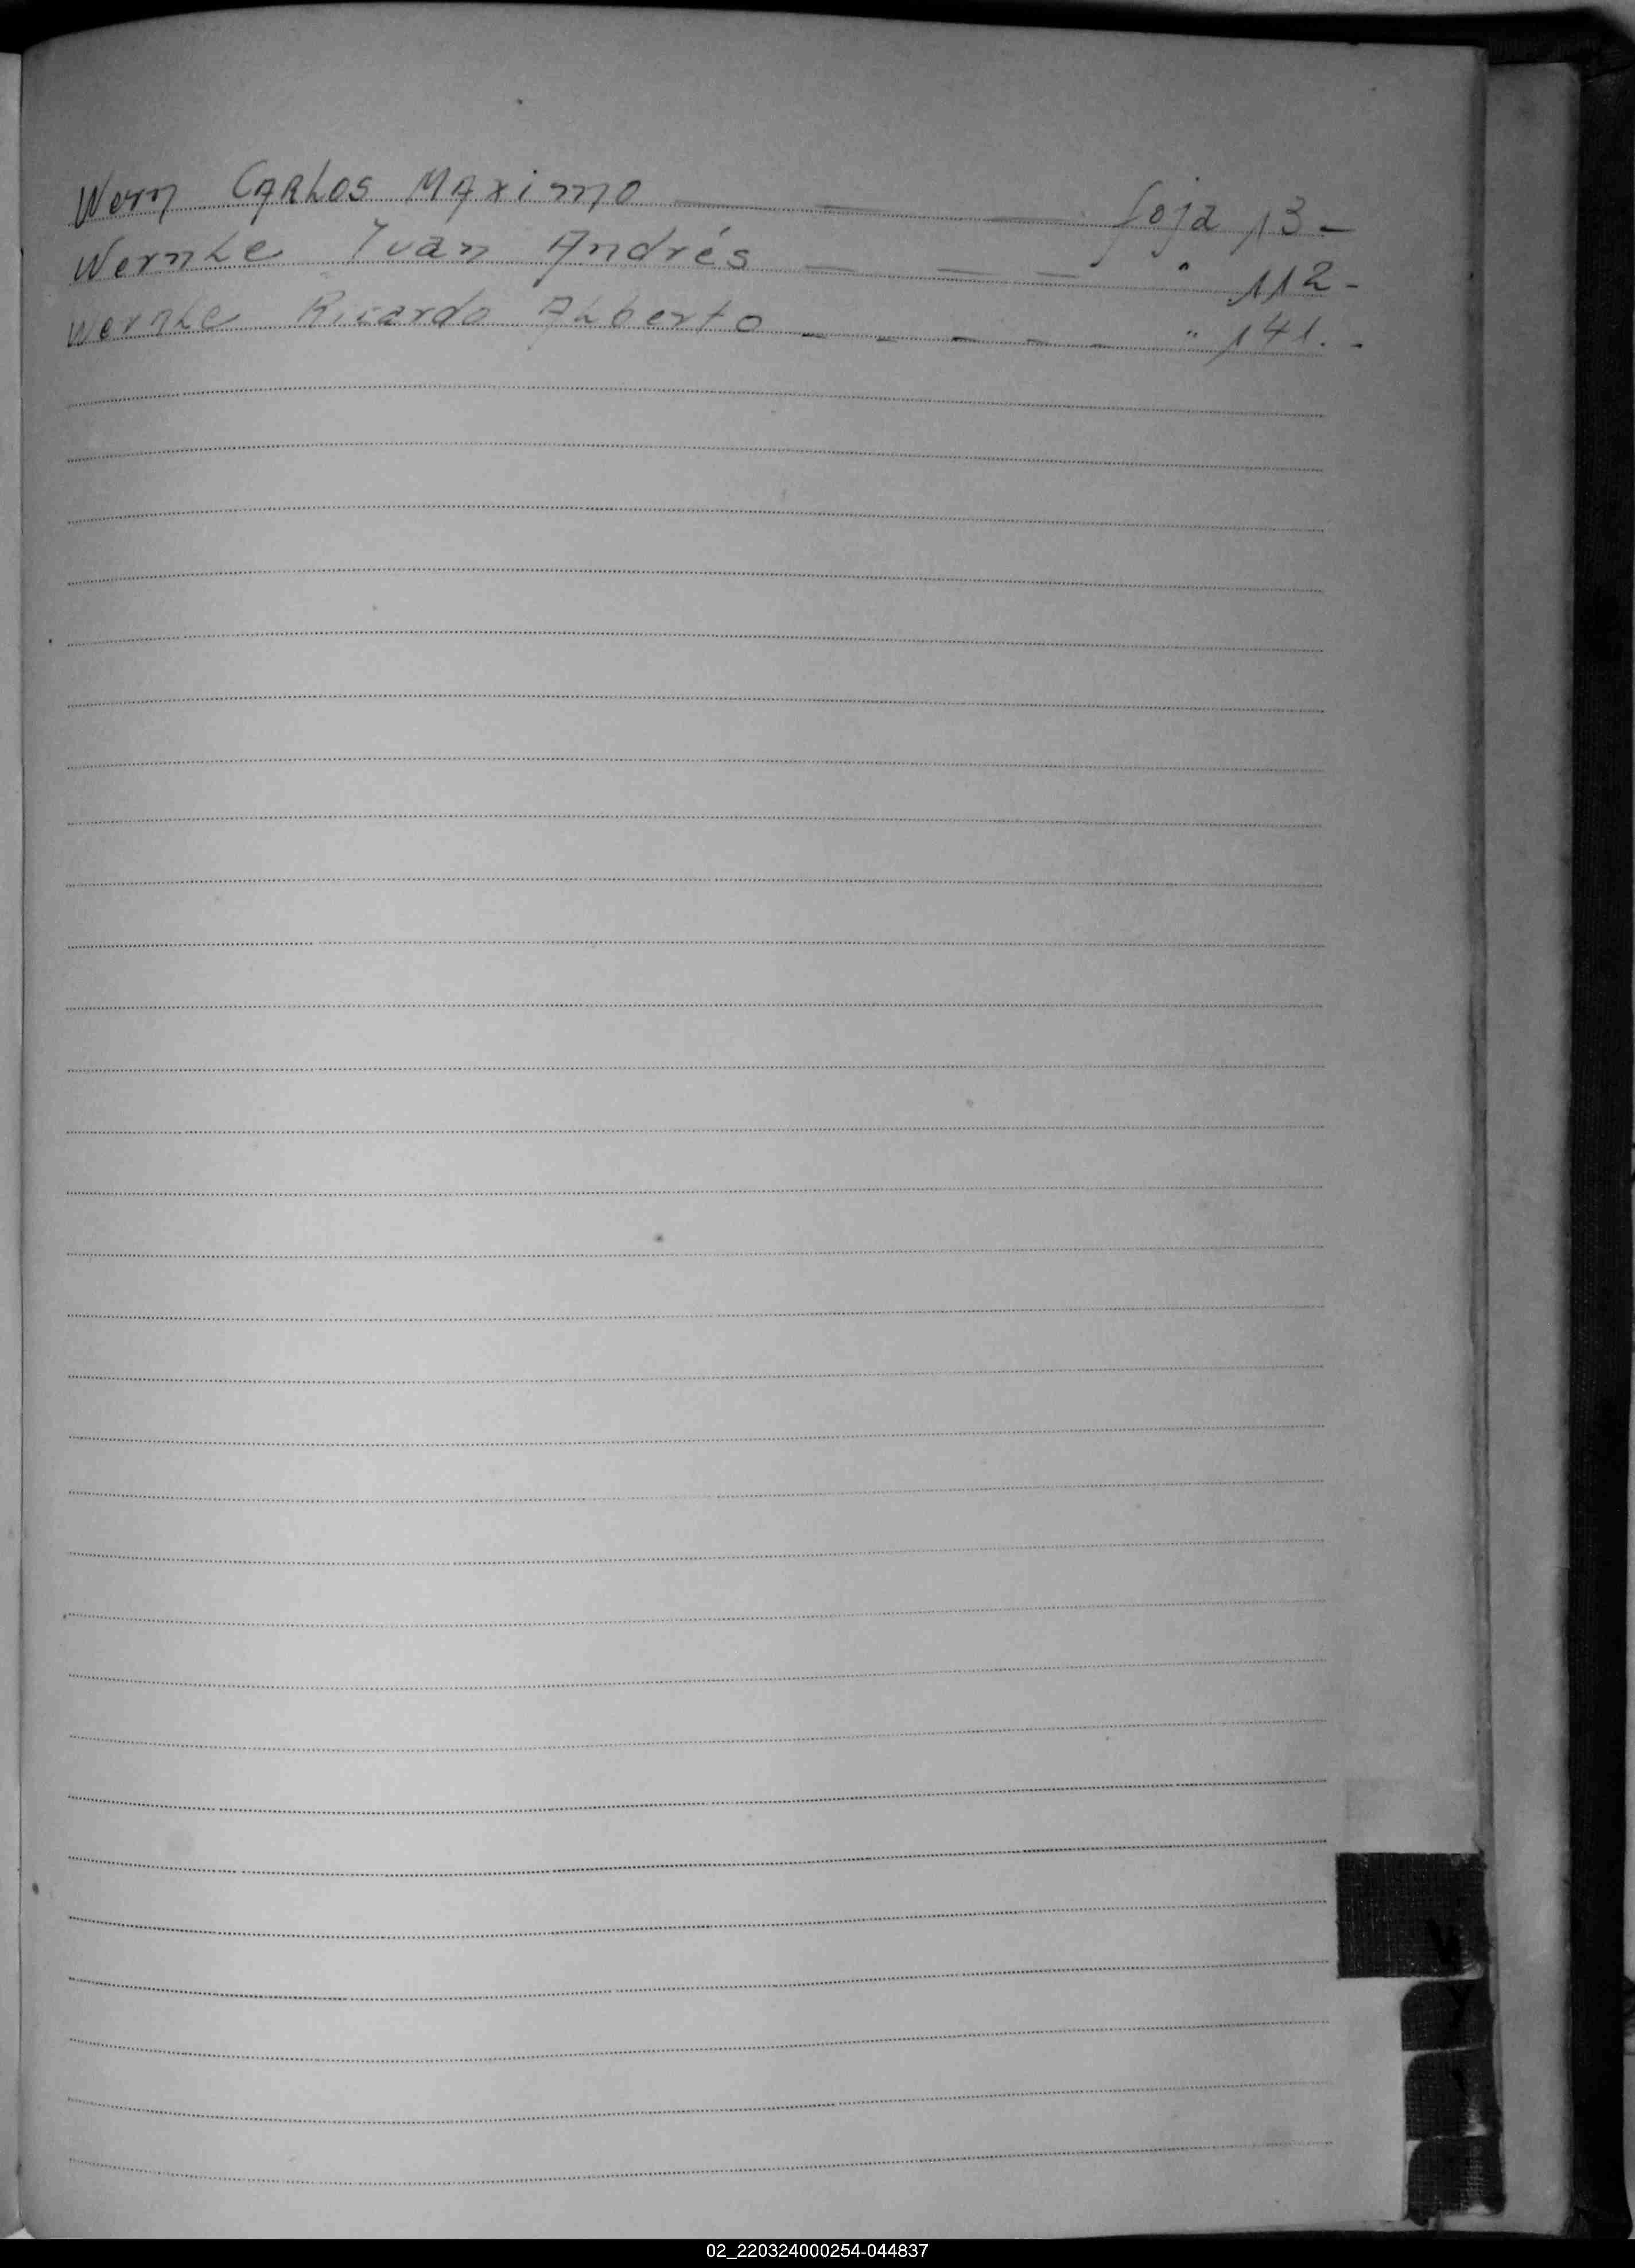 Wern Carlos Maximo — — — foja 13 -
Wernle Ivan Andrés — — — " 112 -
Wernle Ricardo Alberto - - - - - " 141. -
W
Y
02_220324000254-044837